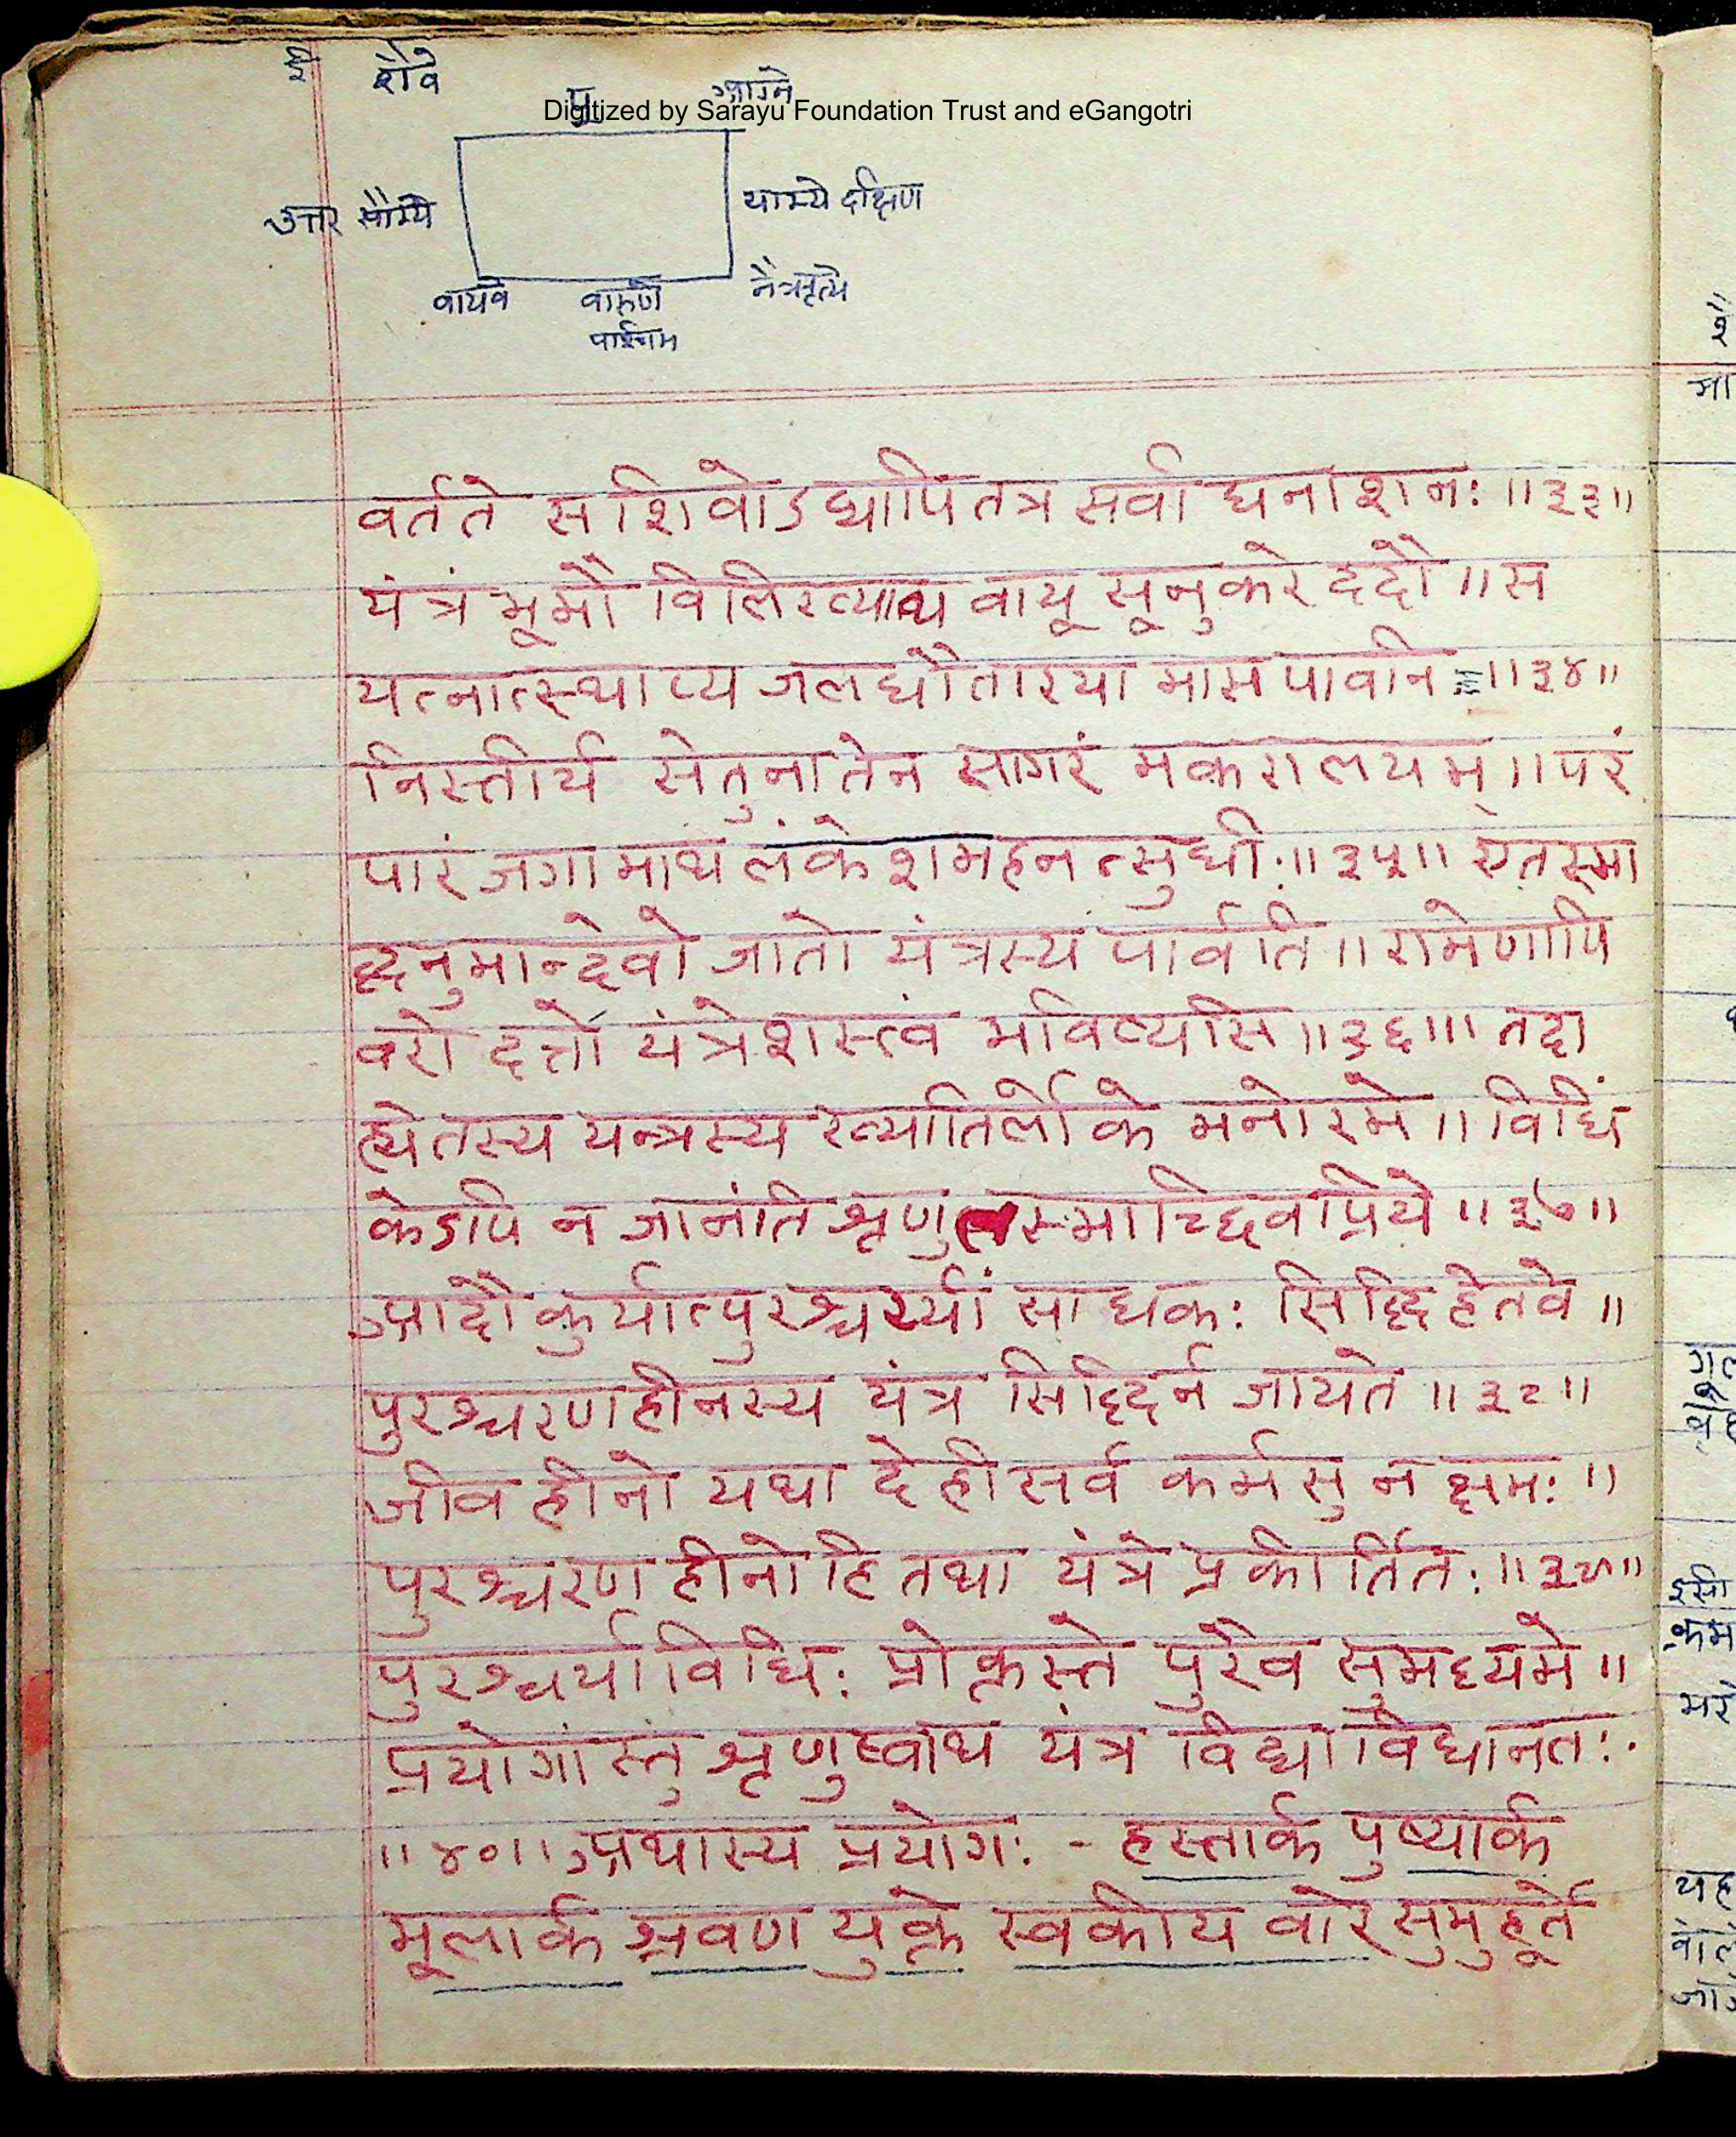 शैवे
पू
Digitized by Sarayu Foundation Trust and eGangotri
उत्तर सौम्ये
याम्ये दक्षिण
वायवे वारुणे नैत्रृत्ये
पश्चिम
वर्तते स शिवोऽद्यापि तत्र सर्वाघनाशनः ॥३३॥
यंत्रं भूमौ विलिख्याथ वायू सूनु करे ददौ ॥ स
यत्नात्स्थाप्य जलधौ तारयामास पावनि ॥३४॥
निस्तीर्य सेतुना तेन सागरं मकरालयम् ॥ परं
पारं जगामाथ लंकेशमहनत्सुधीः ॥३५॥ एतस्मा
द्धनुमान्देवो जातो यंत्रस्य पार्वति ॥ रामेणापि
वरो दत्तो यंत्रेशस्त्वं भविष्यसि ॥३६॥ तदा
ह्येतस्य यन्त्रस्य ख्यातिर्लोके मनोरमे ॥ विधिं
केऽपि न जानंति श्रृणु तस्माच्छिवप्रिये ॥३७॥
आदौ कुर्यात्पुरश्चर्यां साधकः सिद्धि हेतवे ॥
पुरश्चरणहीनस्य यंत्र सिद्धिर्न जायते ॥३८॥
जीव हीनो यथा देही सर्व कर्मसु न क्षमः ॥
पुरश्चरण हीनो हि तथा यंत्रे प्रकीर्तितः ॥३९॥
पुरश्चर्या विधिः प्रोक्तस्ते पुरैव सुमध्यमे ॥
प्रयोगांस्तु श्रृणुष्वाथ यंत्र विद्या विधानतः
॥४०॥ अथास्य प्रयोगः - हस्तार्क पुष्यार्क
मूलार्क श्रवण युक्ते स्वकीय वारे सुमुहूर्ते